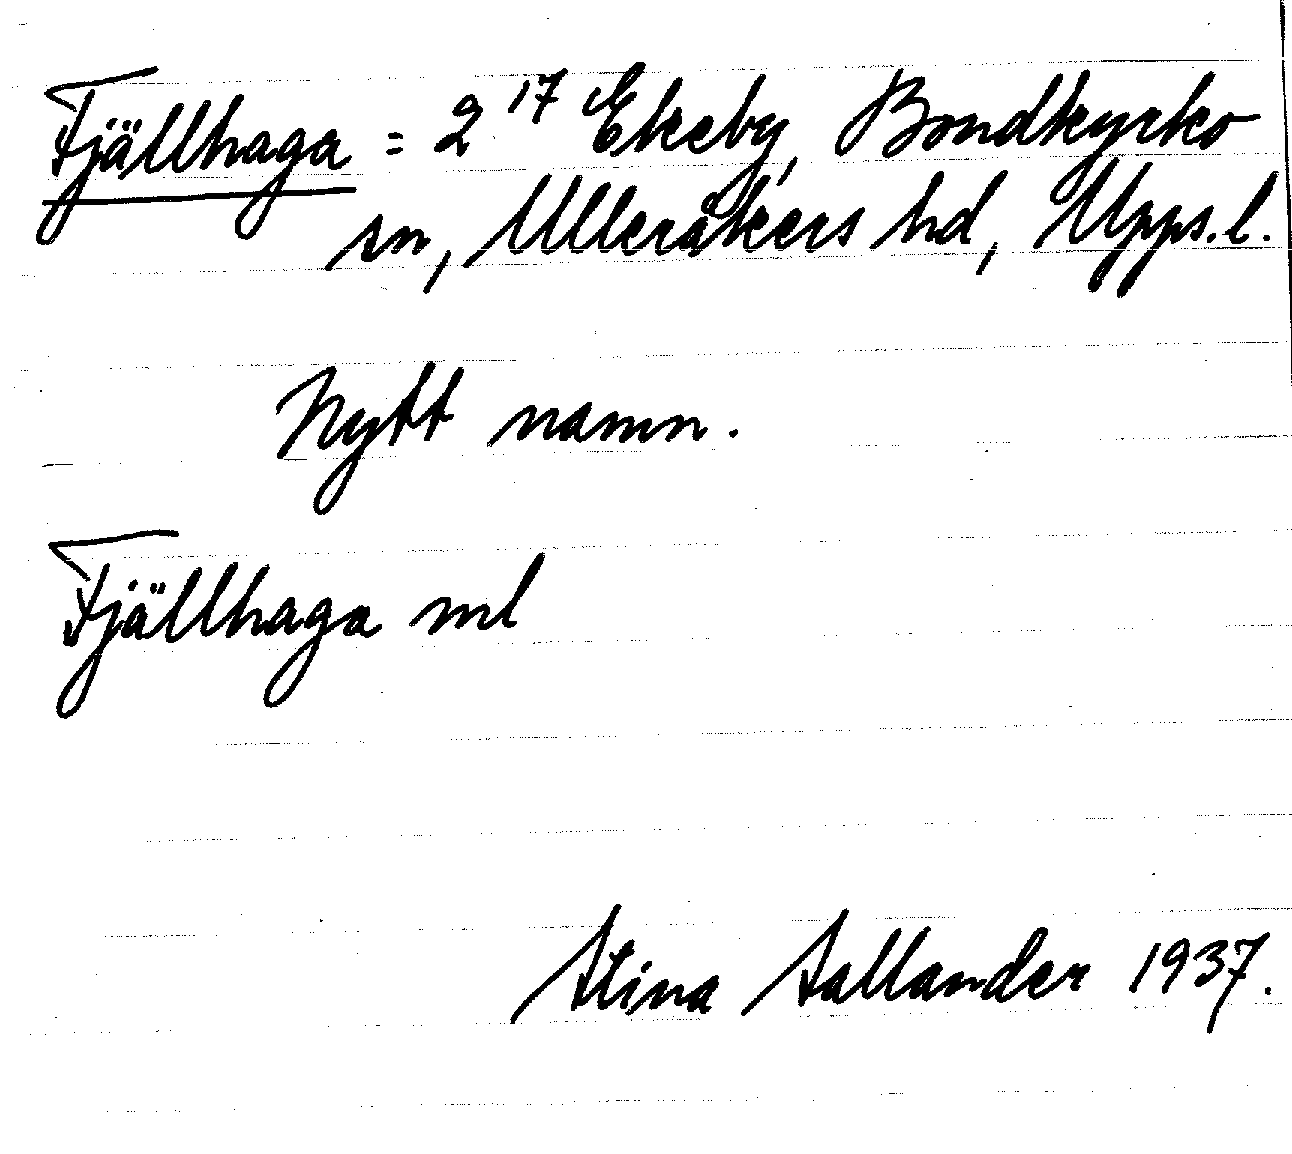 Fjällhaga = 2¹⁷ Ekeby, Bondkyrko
sn, Ulleråkers hd, Upps.l.
Nytt namn.
Fjällhaga ml
Stina Sallander 1937.